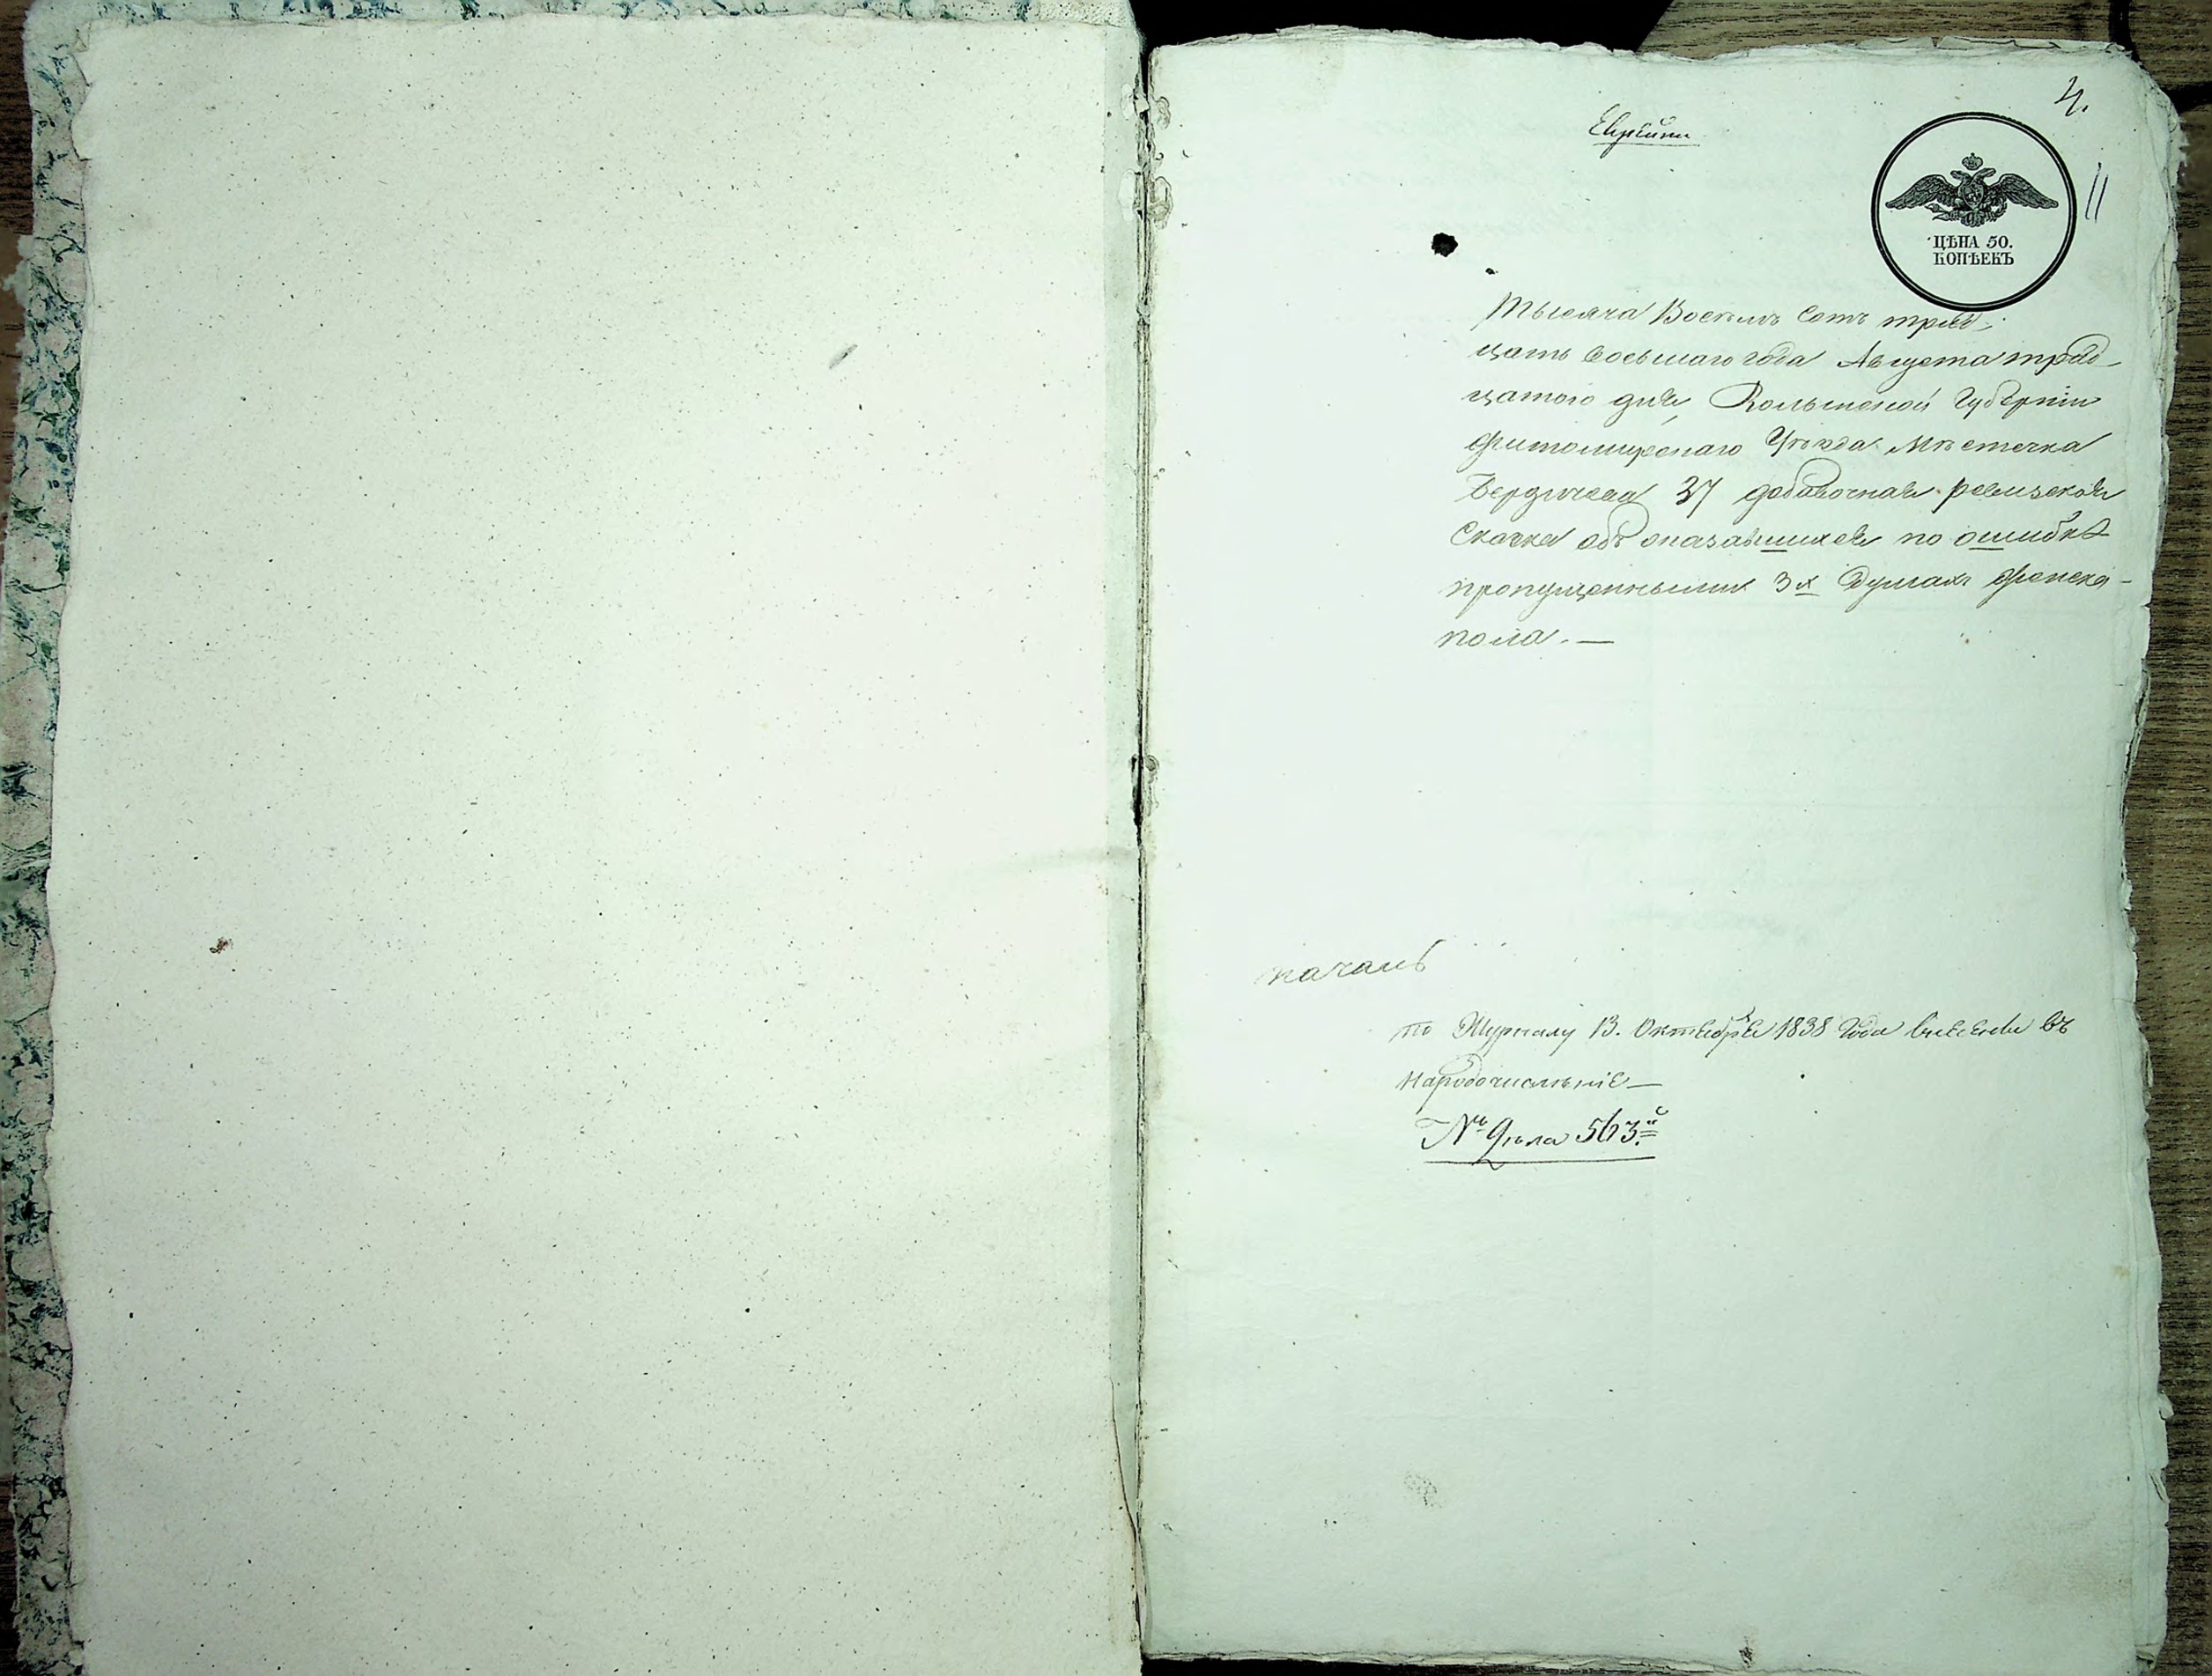 4.
Еврейши
11
ЦѢНА 50.
КОПѢЕКЪ
Тысяча Восемь Сотъ трид-
цать восьмаго года Августа трид-
цатого дня, Волынской Губерніи
Житомирскаго Уѣзда Мѣстечка
Бердичева 37 добавочная ревизская
Сказка объ оказавшихся по ошибкѣ
пропущенными 3х душахъ женска-
пола. —
по Журналу 13. Октября 1838 Года внесены въ
народочисленіе —
№ Дѣла 563.й